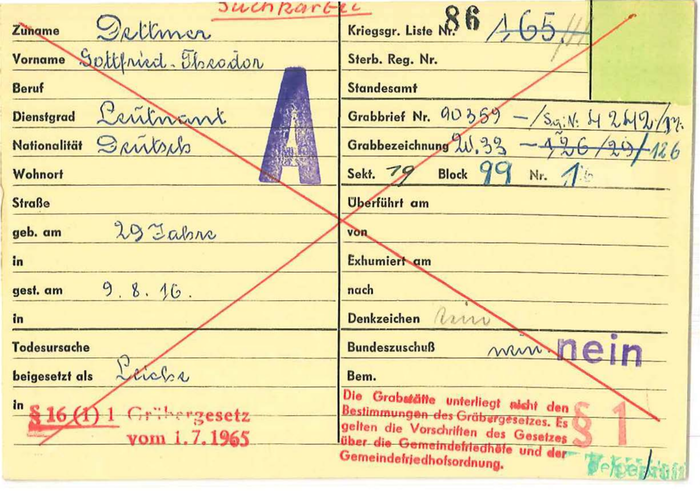 Suchkartei
Zuname Dettmer
Vorname Gottfried-Theodor
Beruf
Dienstgrad Leutnant
Nationalität Deutsch
Wohnort
Straße
geb. am 29 Jahre
in
gest. am 9.8.16.
in
Todesursache
beigesetzt als Leiche
in
§ 16 (1) 1 Gräbergesetz
vom 1.7.1965
A
Kriegsgr. Liste Nr. 86 165
Sterb. Reg. Nr.
Standesamt
Grabbrief Nr. 90369 4242
Grabbezeichnung W.33 - 126/29/ 126
Sekt. 19 Block 99 Nr. 1
Überführt am
von
Exhumiert am
nach
Denkzeichen nein
Bundeszuschuß nein. nein
Bem.
Die Grabstätte unterliegt nicht den
Bestimmungen des Gräbergesetzes. Es
gelten die Vorschriften des Gesetzes
über die Gemeindefriedhöfe und der
Gemeindefriedhofsordnung.
§ 1